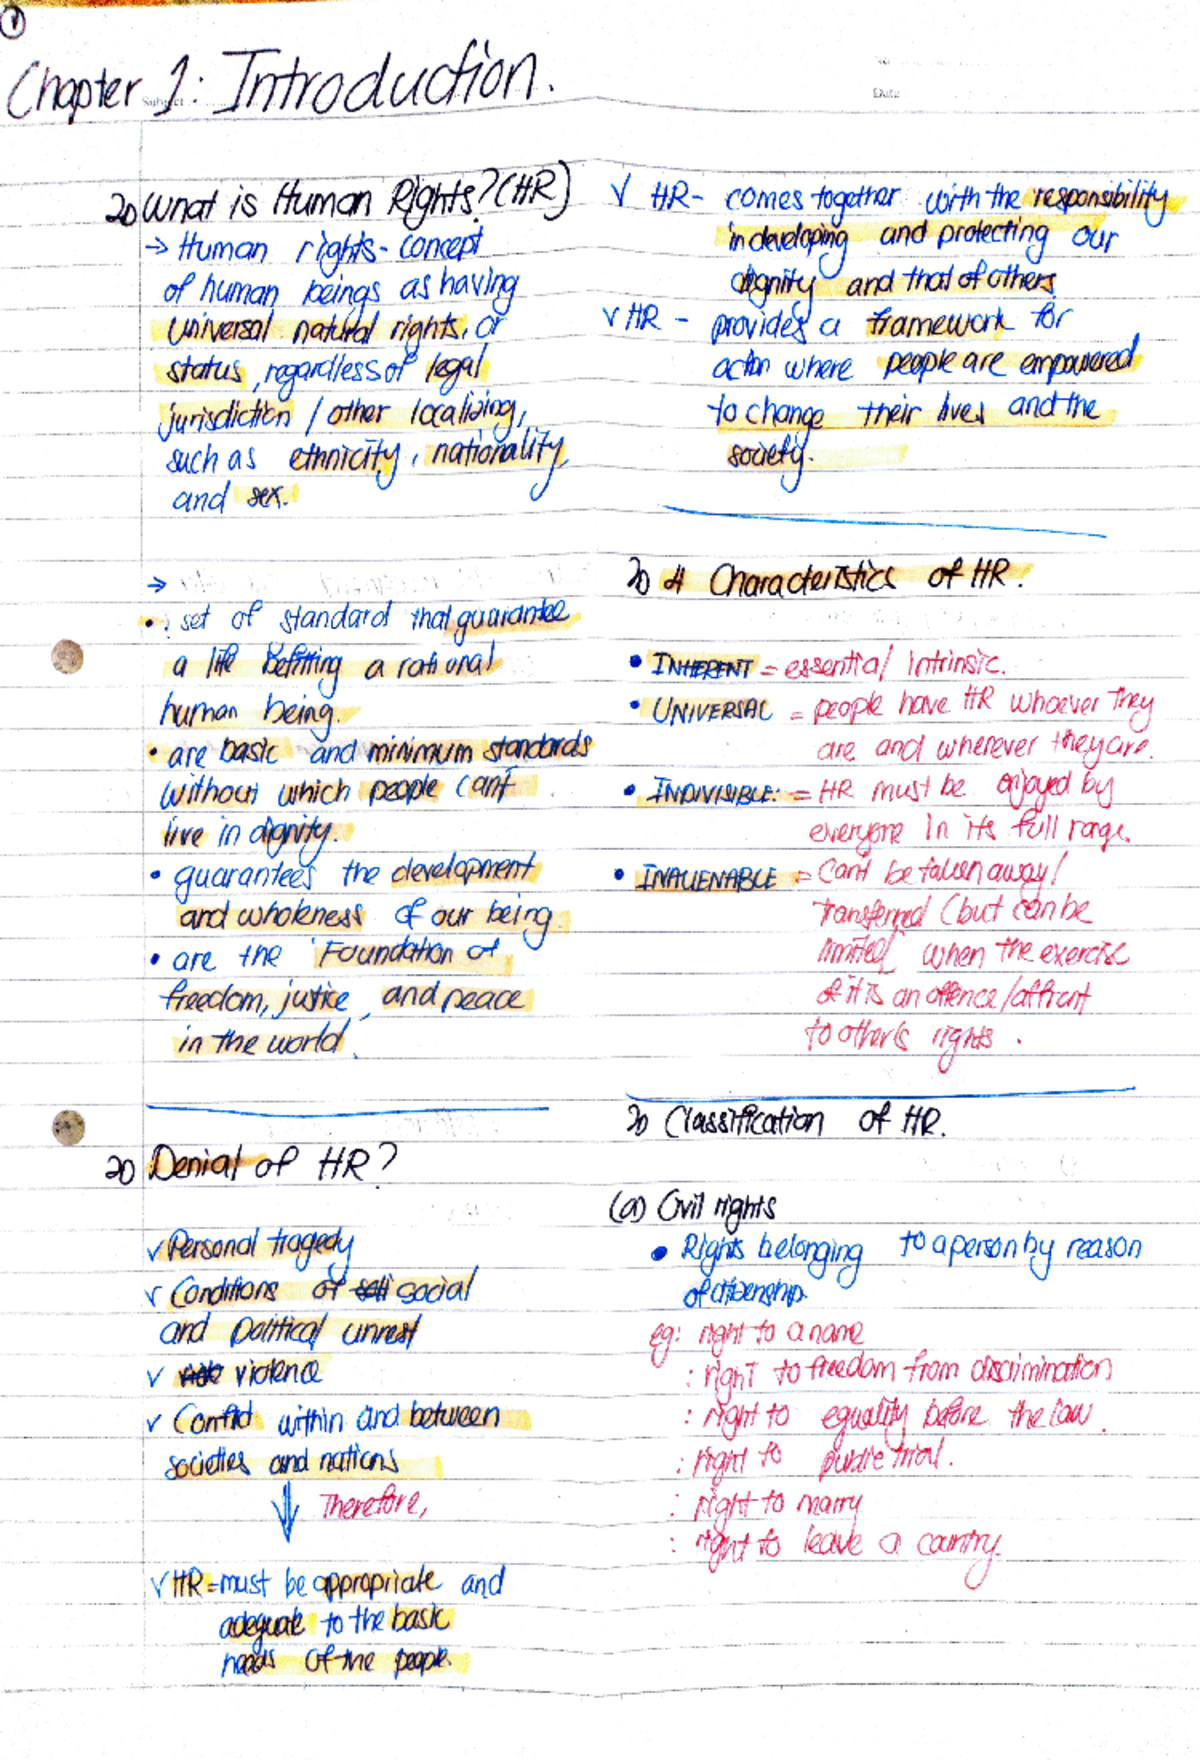 1
Chapter 1: Introduction.
Subject
Date
What is Human Rights? (HR)
→ Human rights - concept
of human beings as having
universal natural rights, or
status, regardless of legal
jurisdiction / other localizing,
such as ethnicity, nationality,
and sex.
→
• : set of standard that guarantee
a life befitting a rational
human being.
• are basic and minimum standards
without which people can't
live in dignity.
• guarantees the development
and wholeness of our being
• are the Foundation of
freedom, justice, and peace
in the world.
Denial of HR?
√ Personal tragedy
√ Conditions of social
and political unrest
√ violence
√ Conflict within and between
societies and nations
Therefore,
√ HR = must be appropriate and
adequate to the basic
needs of the people.
√ HR - comes together with the responsibility
in developing and protecting our
dignity and that of others
√ HR - provides a framework for
action where people are empowered
to change their lives and the
society.
4 Characteristics of HR.
• INHERENT = essential intrinsic.
• UNIVERSAL = people have HR whoever they
are and wherever they are.
• INDIVISIBLE: = HR must be enjoyed by
everyone in its full range.
• INALIENABLE = Can't be taken away /
transferred (but can be
limited, when the exercise
of it is an offence / affront
to other's rights.
Classification of HR.
(a) Civil rights
• Rights belonging to a person by reason
of citizenship.
eg: right to a name
: right to freedom from discrimination
: right to equality before the law.
: right to public trial.
: right to marry
: right to leave a country.